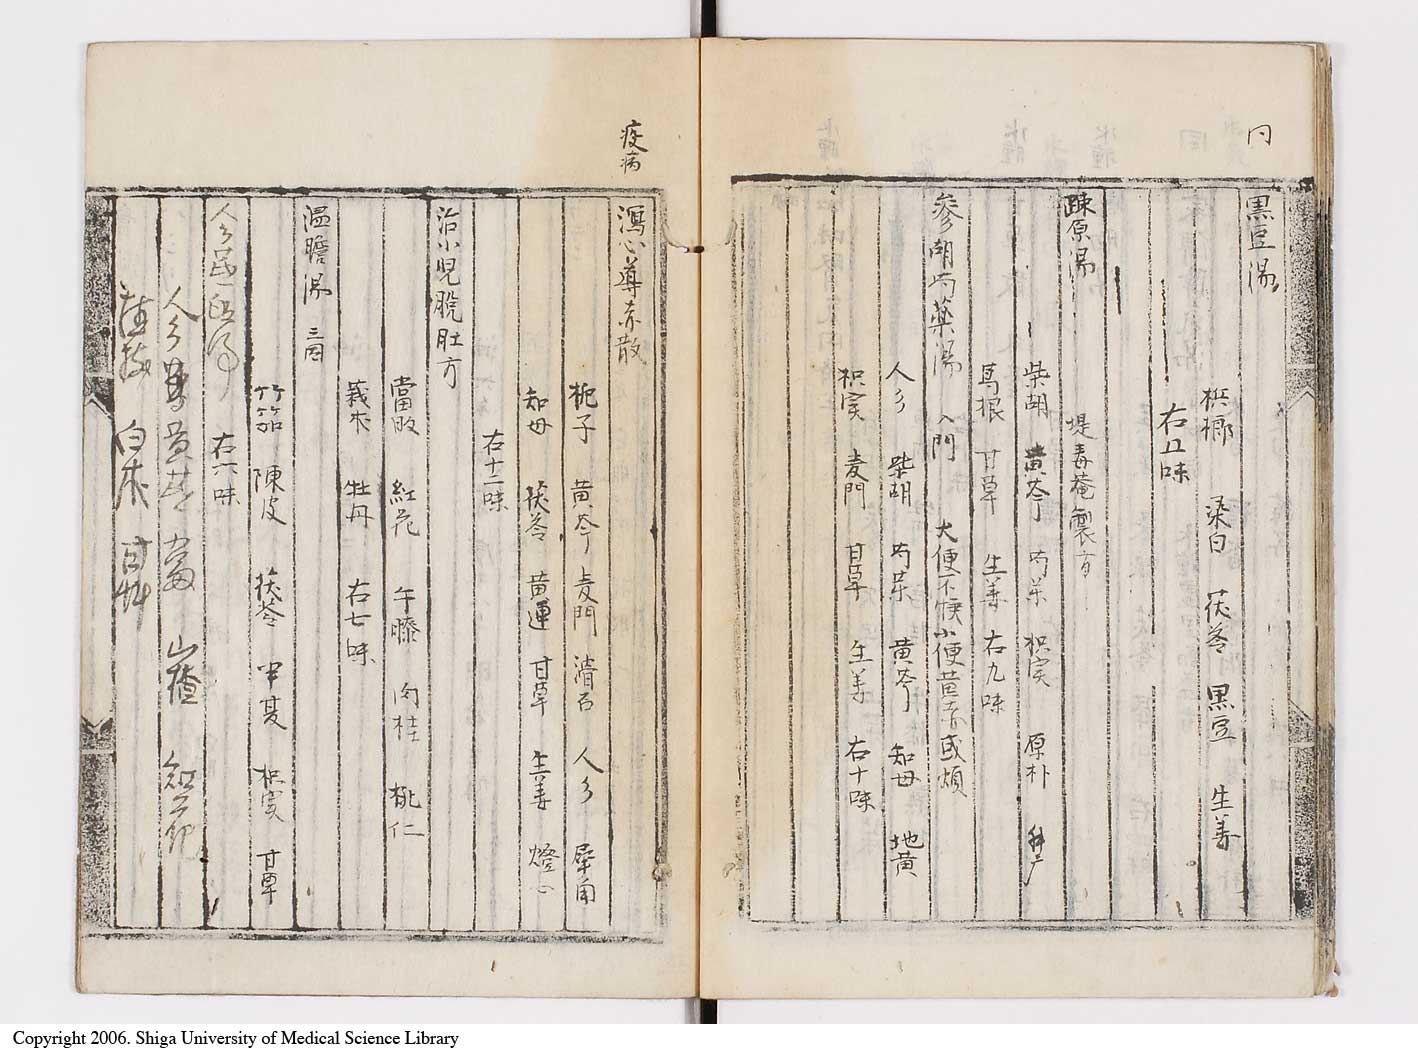 同
黒豆湯
檳榔 桑白 茯苓 黒豆 生姜
右五味
疎原湯 堤毒菴製方
柴胡 黄芩 芍薬 枳実 厚朴
葛根 甘草 生姜 右九味
參胡芍薬湯 入門 大便不快小便黄赤或煩
人参 柴胡 芍薬 黄芩 知母 地黄
枳実 麦門 甘草 生姜 右十味
疫病
瀉心導赤散
梔子 黄芩 麦門 滑石 人参 犀角
知母 茯苓 黄連 甘草 生姜 燈心
右十二味
治小児脱肚方
當皈 紅花 午膝 肉桂 桃仁
莪朮 牡丹 右七味
温膽湯 三因
竹筎 陳皮 茯苓 半夏 枳実 甘草
右六味
人参 黄芪 當 山楂 紅花
白朮 甘艸
Copyright 2006. Shiga University of Medical Science Library